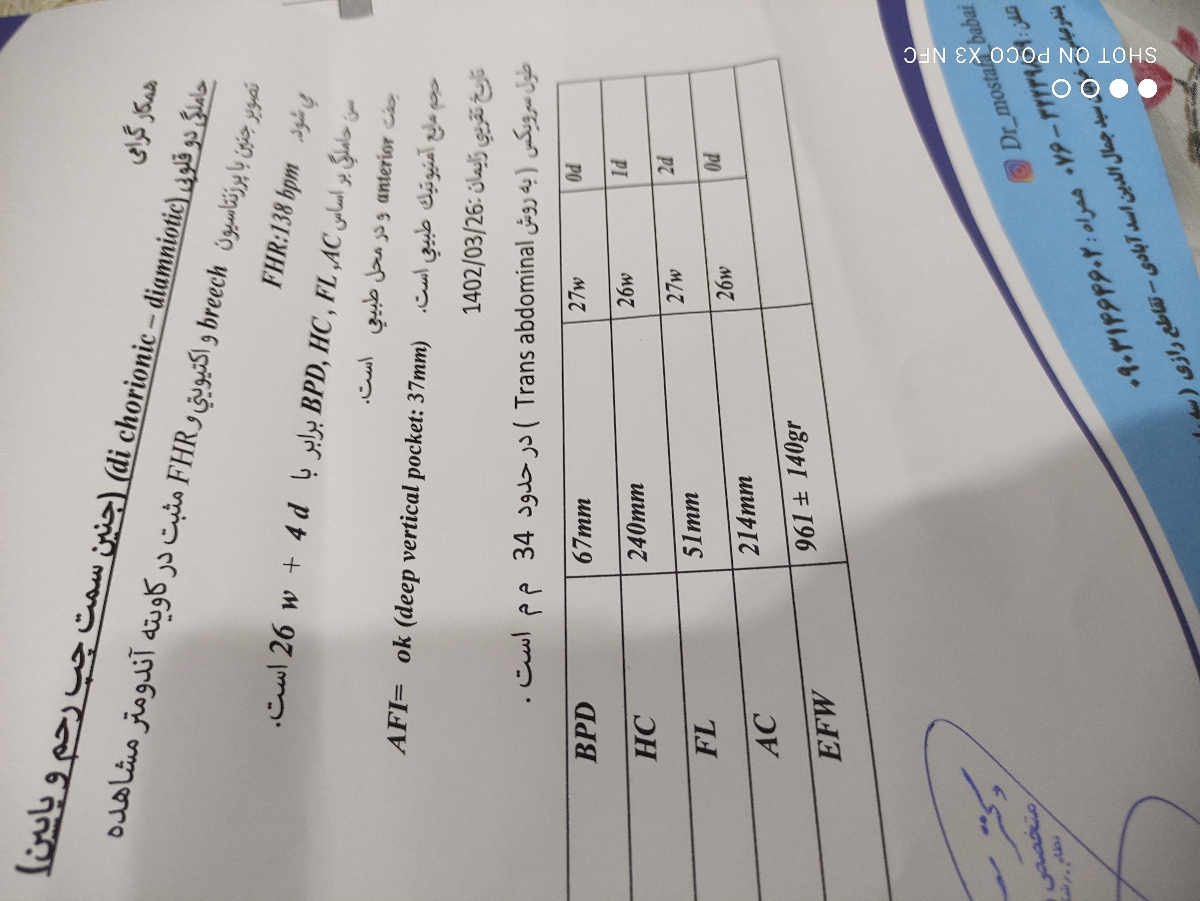 همکار گرامی
حاملگی دو قلویی (di chorionic – diamniotic) (جنین سمت چپ رحم و پایین)
تصویر جنین با پرزنتاسیون breech و اکتیویتی و FHR مثبت در کاویته آندومتر مشاهده
می شود. FHR:138 bpm
سن حاملگی بر اساس BPD, HC, FL,AC برابر با 26 w + 4 d است.
جفت anterior و در محل طبیعی است.
حجم مایع آمنیوتیک طبیعی است. AFI= ok (deep vertical pocket: 37mm)
تاریخ تقریبی زایمان: 1402/03/26
طول سرویکس (به روش Trans abdominal) در حدود 34 م م است.
BPD 67mm 27w 0d
HC 240mm 26w 1d
FL 51mm 27w 2d
AC 214mm 26w 0d
EFW 961 ± 140gr
دکتر
متخصص
Dr_mostafa_babai
همراه: ۰۹۰۳۱۴۶۴۶۶۰۲
سید جمال الدین اسد آبادی - تقاطع رازی
SHOT ON POCO X3 NFC